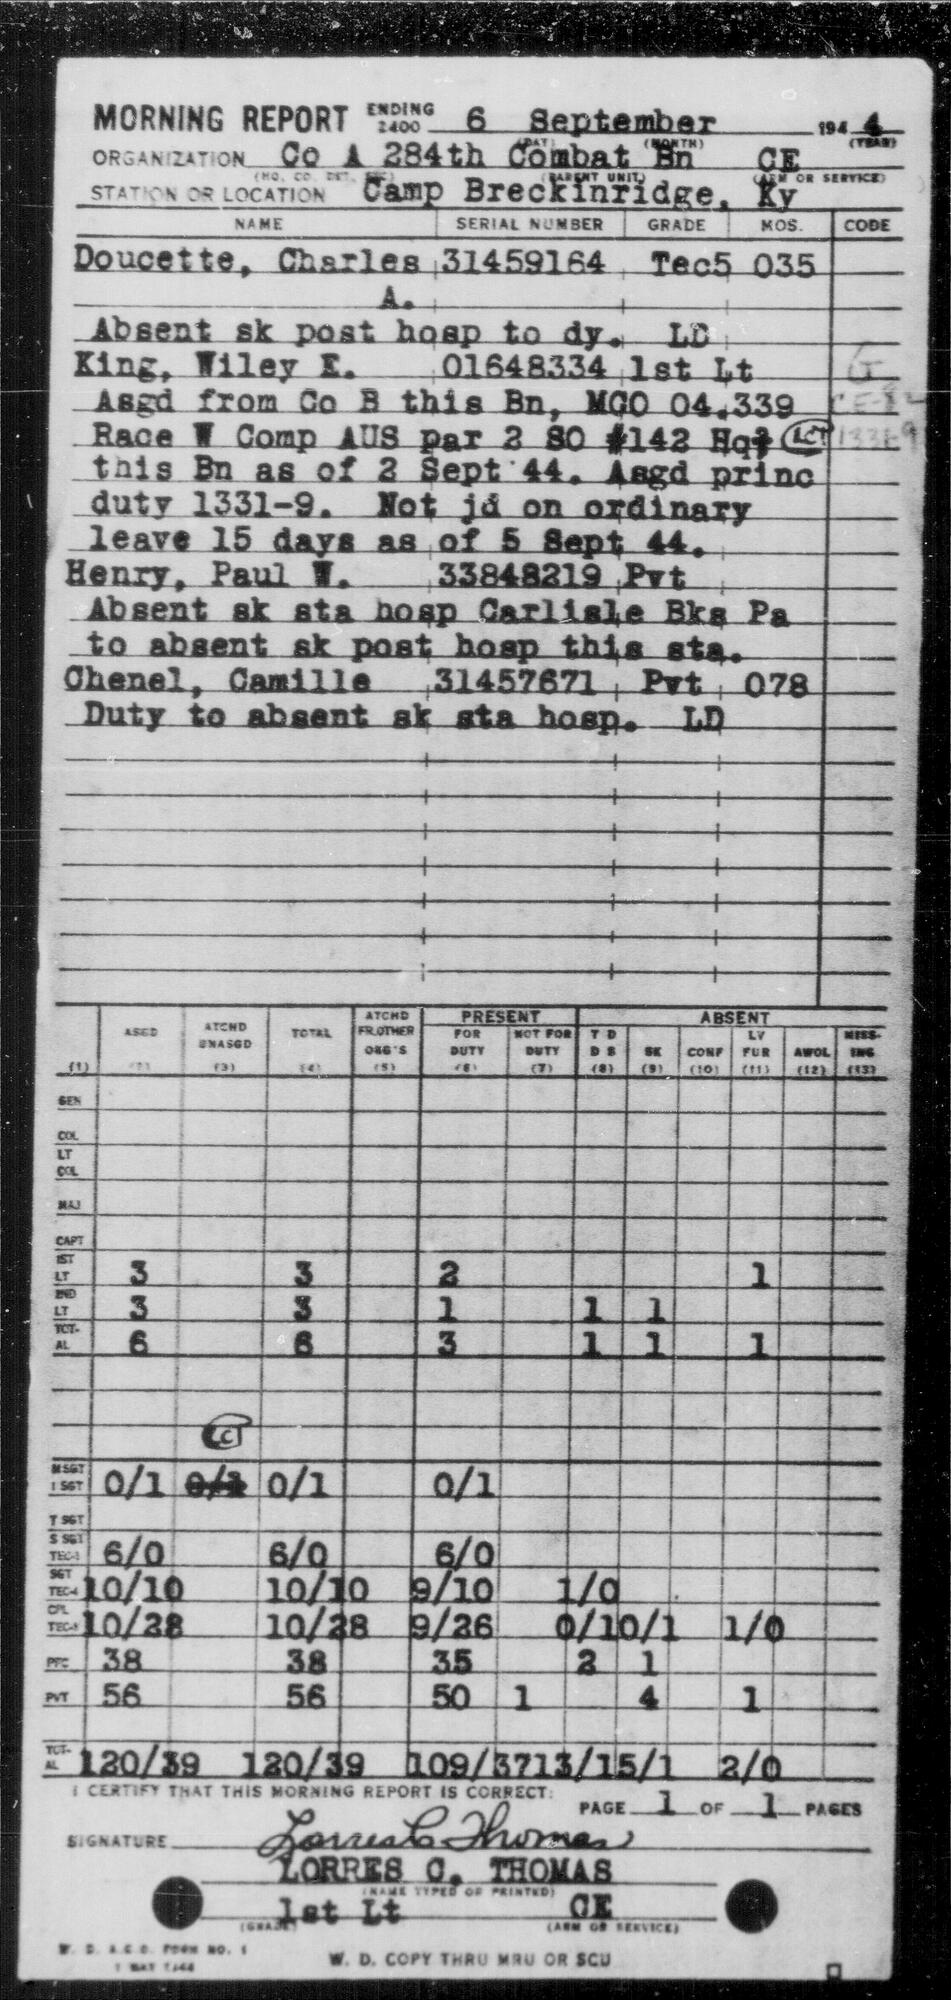 MORNING REPORT ENDING 2400 6 September 1944
(DAY) (MONTH) (YEAR)
ORGANIZATION Co A 284th Combat Bn CE
(HQ. CO. DET. ETC) (PARENT UNIT) (ARM OR SERVICE)
STATION OR LOCATION Camp Breckinridge, Ky
NAME SERIAL NUMBER GRADE MOS. CODE
Doucette, Charles 31459164 Tec5 035
A.
Absent sk post hosp to dy. LD
King, Wiley E. 01648334 1st Lt
Asgd from Co B this Bn, MCO 04.339
Race W Comp AUS par 2 SO #142 Hq LCT 1331-9
this Bn as of 2 Sept 44. Asgd princ
duty 1331-9. Not jd on ordinary
leave 15 days as of 5 Sept 44.
Henry, Paul W. 33848219 Pvt
Absent sk sta hosp Carlisle Bks Pa
to absent sk post hosp this sta.
Chenel, Camille 31457671 Pvt 078
Duty to absent sk sta hosp. LD
PRESENT ABSENT
ASGD ATCHD UNASGD TOTAL ATCHD FR.OTHER ORG'S FOR DUTY NOT FOR DUTY T D D S SK CONF LV FUR AWOL MISS-ING
(1) (2) (3) (4) (5) (6) (7) (8) (9) (10) (11) (12) (13)
GEN
COL
LT COL
MAJ
CAPT
1ST LT 3 3 2 1
2ND LT 3 3 1 1 1
TOT-AL 6 6 3 1 1 1
LCT
M SGT 1 SGT 0/1 0/1 0/1 0/1
T SGT
S SGT TEC-3 6/0 6/0 6/0
SGT TEC-4 10/10 10/10 9/10 1/0
CPL TEC-5 10/28 10/28 9/26 0/1 0/1 1/0
PFC 38 38 35 2 1
PVT 56 56 50 1 4 1
TOT-AL 120/39 120/39 109/37 1 3/1 5/1 2/0
I CERTIFY THAT THIS MORNING REPORT IS CORRECT:
PAGE 1 OF 1 PAGES
SIGNATURE Lorres C Thomas
LORRES C. THOMAS
(NAME TYPED OR PRINTED)
1st Lt CE
(GRADE) (ARM OR SERVICE)
W. D. A.G.O. FORM NO. 1
1 MAY 1944
W. D. COPY THRU MRU OR SCU